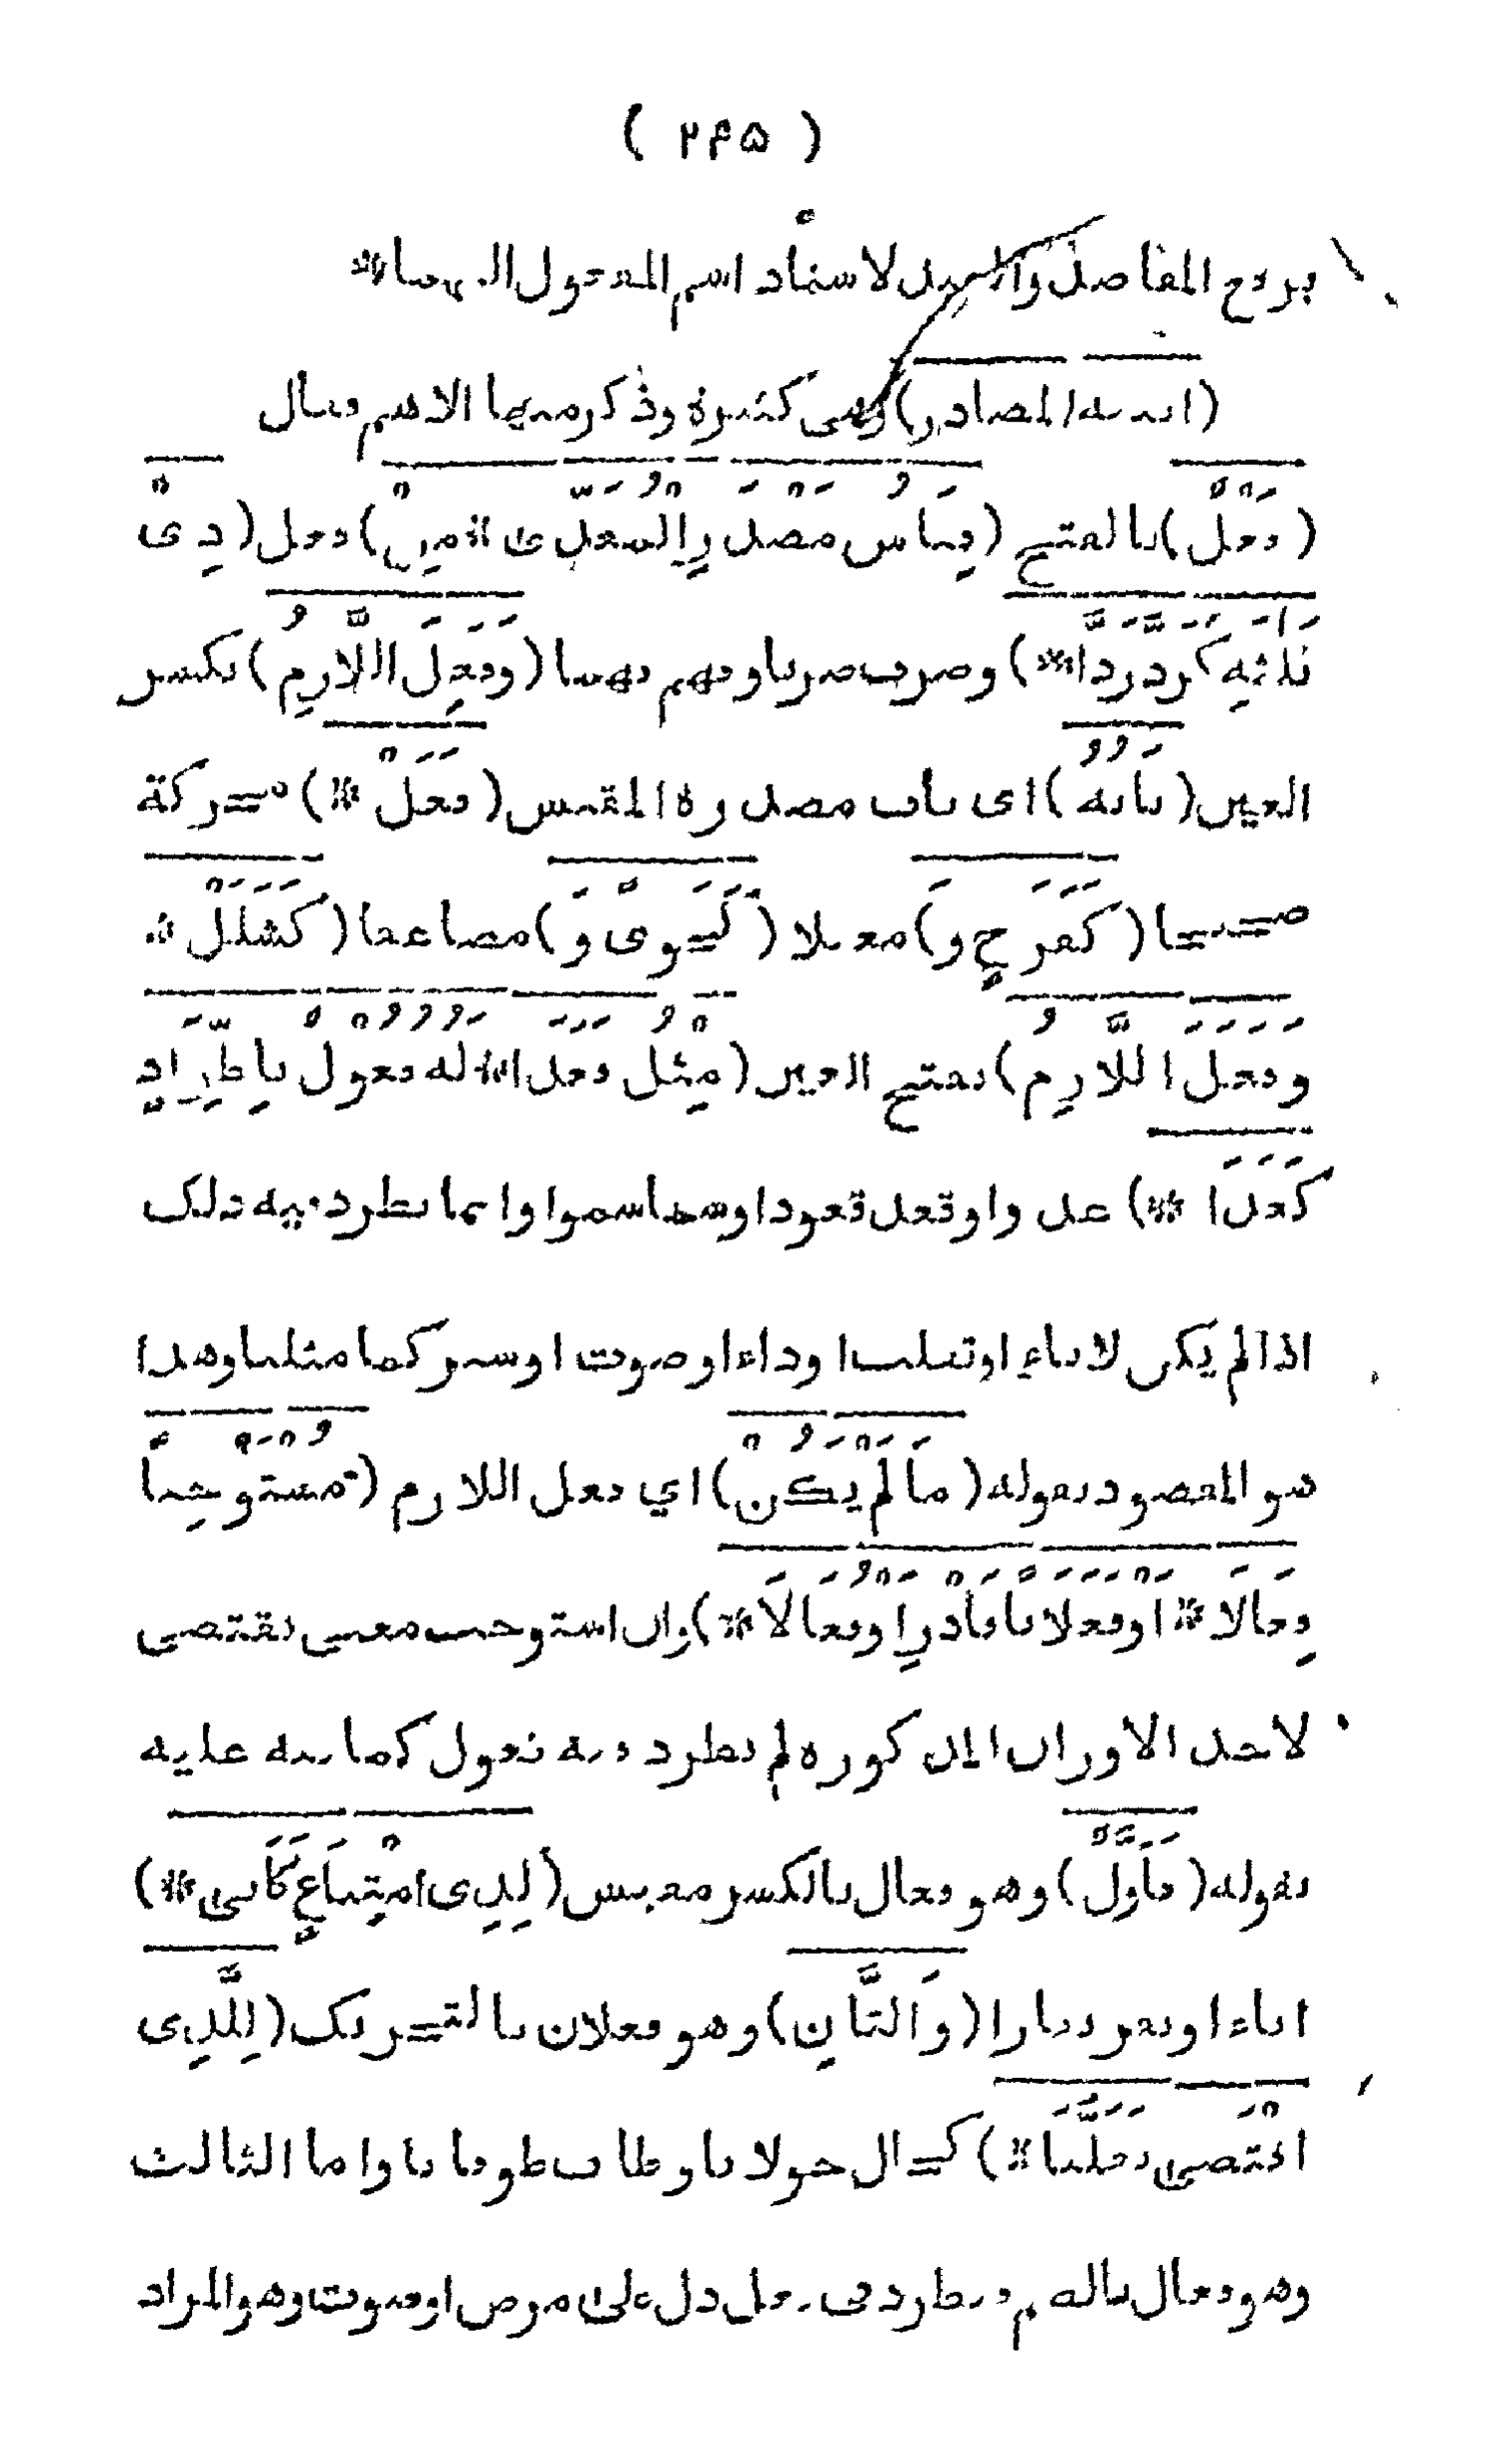 ( ۲۴۵ )
برفع المفاصل والسيد لاسناد اسم المفعول اليهما *
(ابنية المصادر) وهى كثيرة وذكر منها الاهم فقال
(فَعْلٌ) بالفتح (قِياسُ مَصْدَرِ الْمُعَدّى * مِنْ) فعل (ذِىْ
ثَلٰثَةٍ كَرَدَّ رَدَّا *) وضرب ضربا وفهم فهما (وَفَعِلَ اللَّازِمُ) بكسر
العين (بَابُهُ) اى باب مصدره المقيس (فَعَلْ *) محركة
صحيحا (كَفَرَحٍ وَ) معتلا (كَجَوىً وَ) مضاعفا (كَشَلَلْ *
وَفَعَلَ اللَّازِمُ) بفتح العين (مِثْلُ فَعَدَا * لَهُ فُعُولٌ بِاطِّرَادٍ
كَغَدَا *) غدوا وقعد قعودا وسما سموا وانما يطرد فيه ذلك
اذا لم يكن لاباء او تقلب او داء او صوت او سير كما مثلنا وهذا
هو المقصود بقوله (مَا لَمْ يَكُنْ) اي فعل اللازم (مُسْتَوْجِباً
فِعَالَا * اَوْ فَعَلَاناً فَادْرِ اَوْ فُعَالَا *) وان استوجب معنى يقتضى
لاحد الاوزان المذكوره لم يطرد فيه فعول كما نبه عليه
بقوله (فَاَوَّلٌ) وهو فعال بالكسر مقيس (لِذِى امْتِنَاعٍ كَاَبى *)
اباء او نفر نفارا (وَالثَّانِ) وهو فعلان بالتحريك (لِلَّذِى
اقْتَضى تَقَلُّبا *) كجال جولانا وطاف طوفانا واما الثالث
وهو فعال بالضم فيطرد فى فعل دل على مرض او صوت وهو المراد